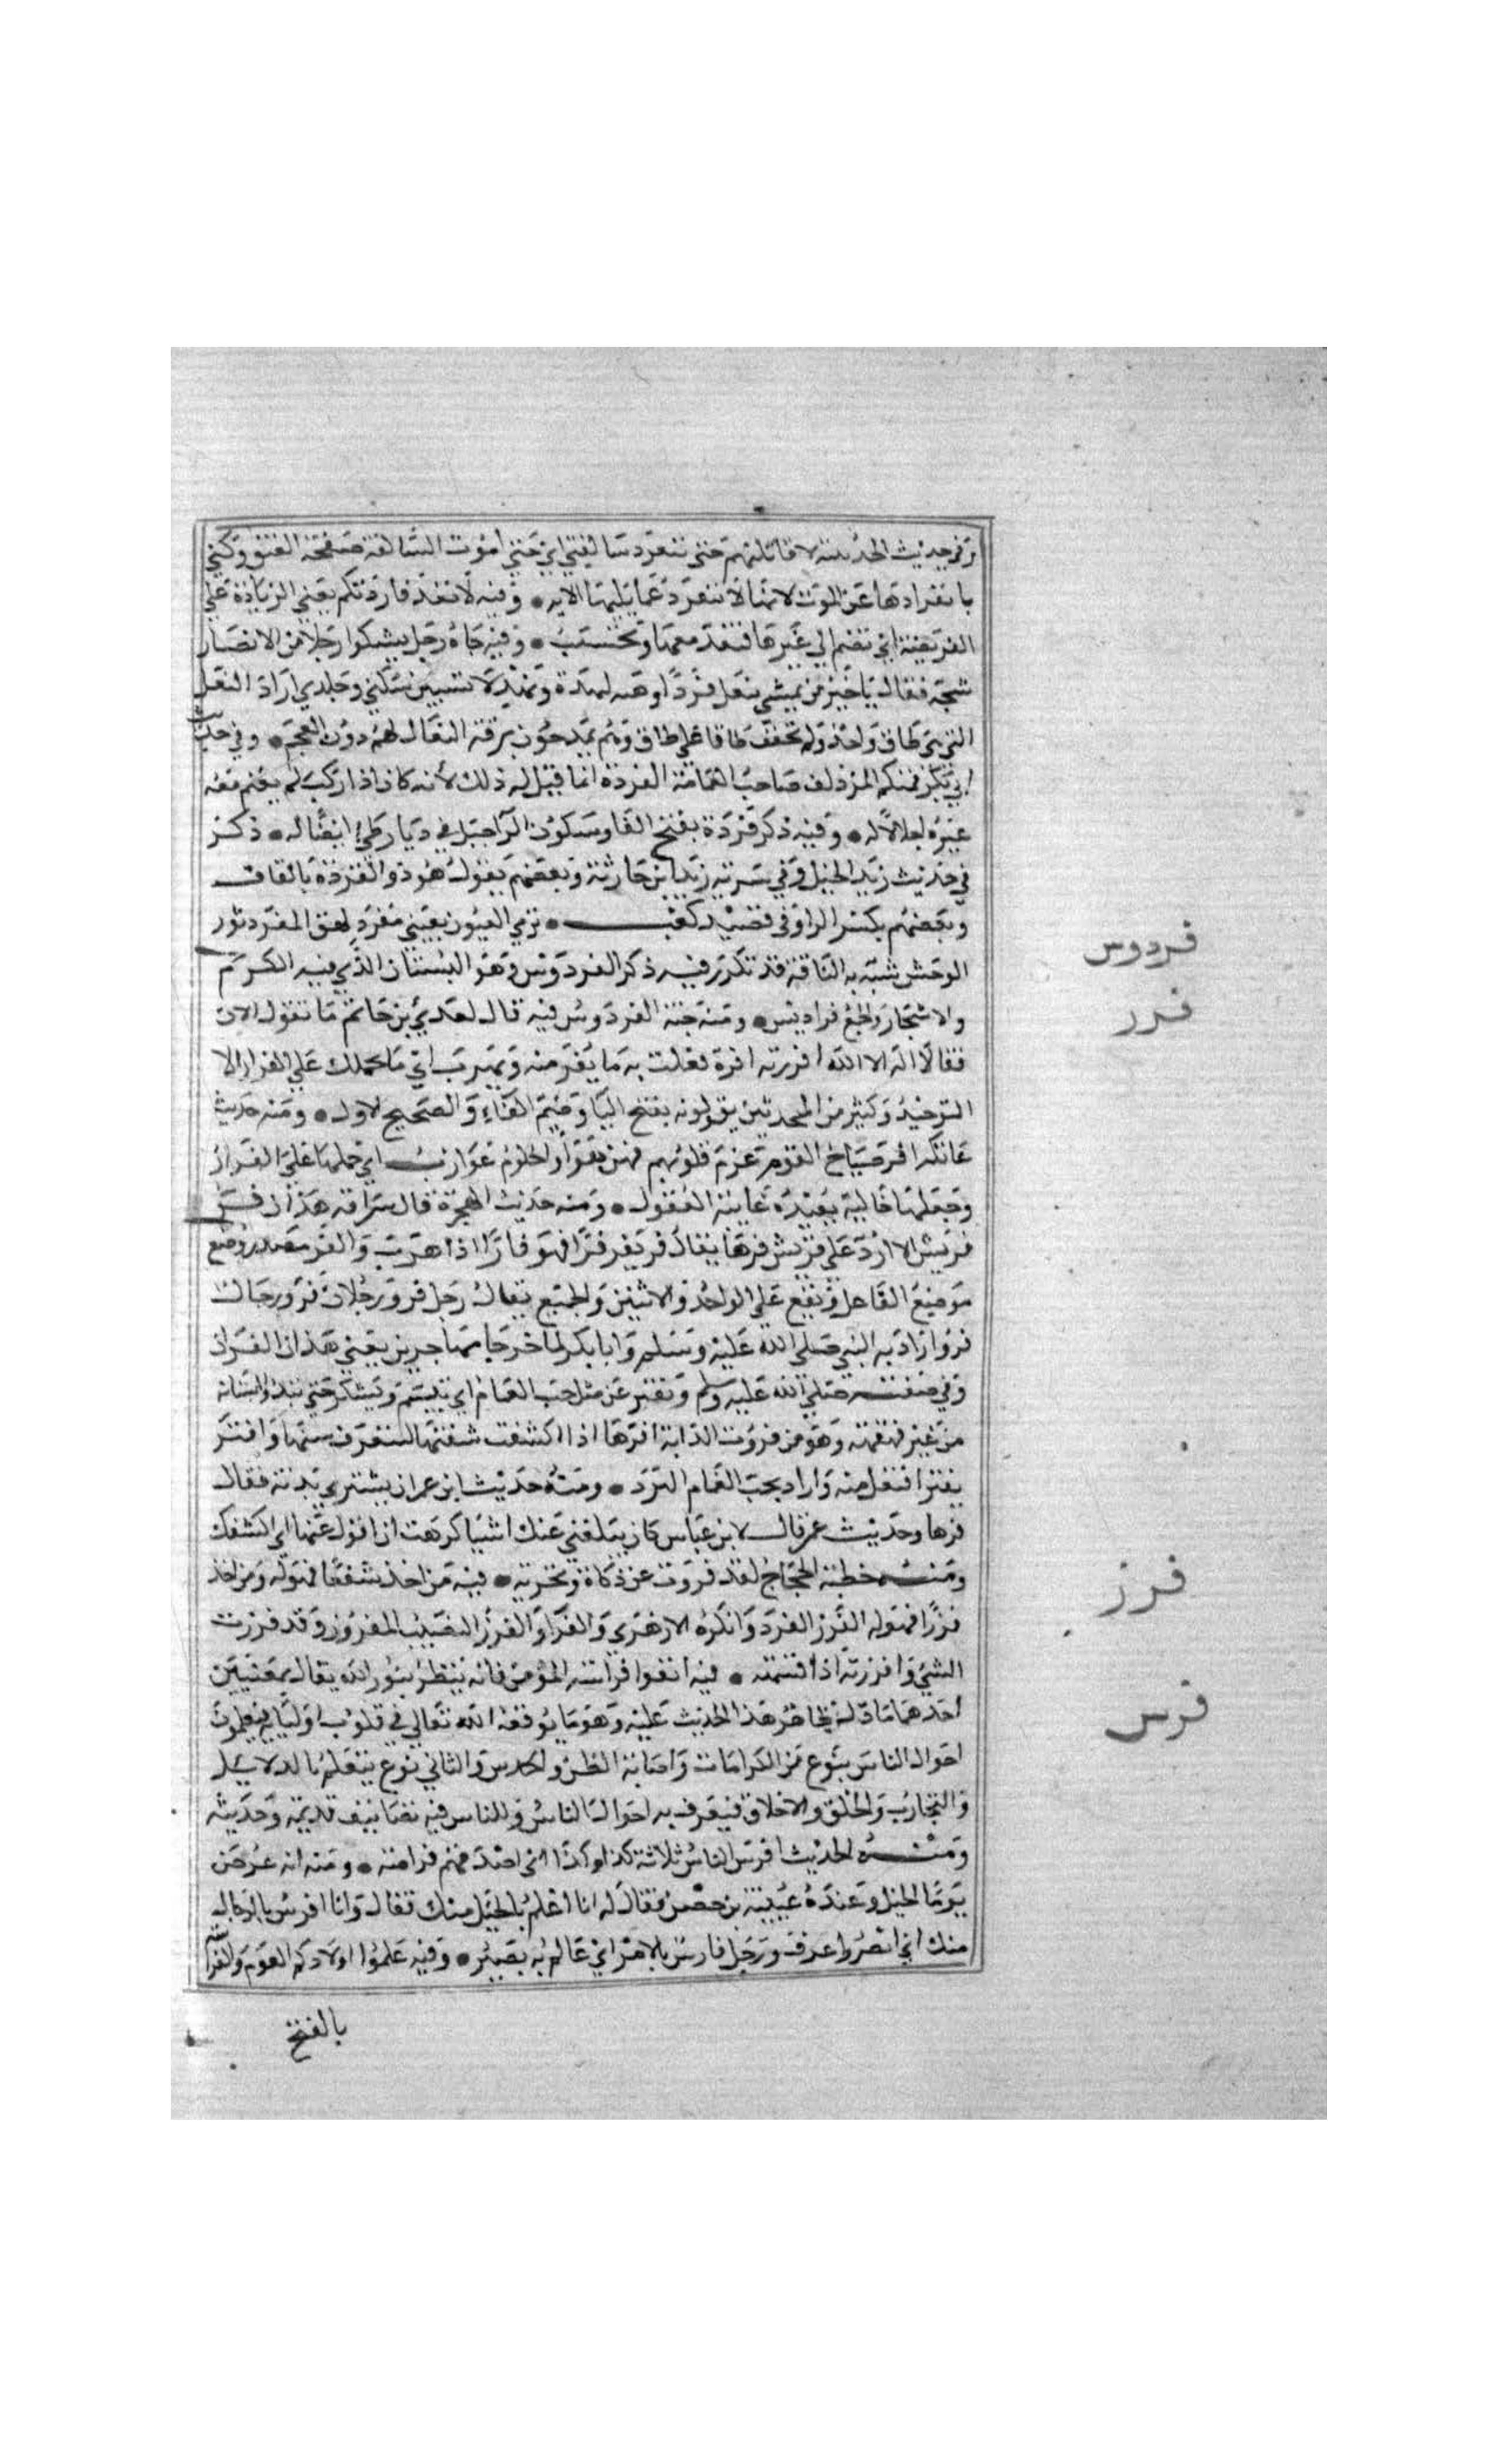 وفي حديث الحديبية لاقاتلنهم حتى تنفرد سالفتي اي حتى اموت السالفة صفحة العنق وكني
بانفرادها عن الموت لانها لا تنفرد عما يليها الا به • وفيه لا تعد فاردتكم يعني الزيادة على
الفريضة اي تضم الى غيرها فتعد معها وتحتسب • وفيه جاه رجل يشكوا رجلا من الانصار
شجه فقال يا خير من يمشي بنعل فرد اوهبه لنهدة ونهد لا تسبين سلبي وجلدي اراد النعل
التي هي طاق واحد ولم تخصف طاقا على طاق وهم يمدحون برقة النعال لهم دون العجم • وفي حديث
ابي بكر فمنكم المزدلف صاحب العمامة الفردة انما قيل له ذلك لأنه كان اذا ركب لم يعتم معه
غيره اجلالا له • وفيه ذكر فردة بفتح الفا وسكون الرا جبل في ديار طي ايضا له • ذكر
في حديث زيد الخيل وفي سرية زيد ابن حارثة وبعضهم يقول هو ذو القردة بالقاف
وبعضهم بكسر الرا وفي قصيد كعب • ترمي الغيوب بعيني مفرد لهق المفرد ثور
الوحش شبه به الناقة قد تكرر فيه ذكر الفردوس وهو البستان الذي فيه الكرم
والاشجار والجمع فراديس • ومنه جنة الفردوس فيه قال لعدي بن حاتم ما تقول الان
فقال لا اله الا الله افررته افرة فعلت به ما يفر منه ويهرب اي ما يحملك على الفرار الا
التوحيد وكثير من المحدثين يقولونه بفتح اليا وضم الفاء والصحيح لاول • ومنه حديث
عاتكه افر صياح القوم عزم قلوبهم فهن هواء والحلوم عوازب اي حملها على الفرار
وجعلها خالية بعيدة غايبة العقول • ومنه حديث الهجرة قال سراقه هذان فر
قريش الا ارد على قريش فرها يقال فر يفر فرا فهو فار اذا هرب والفر مصدر وضع
موضع الفاعل ويقع على الواحد والاثنين والجميع يقال رجل فر ورجلان فر ورجال
فر وارادبه النبي صلى الله عليه وسلم وابا بكر لما خرجا مهاجرين يعني هذان الفران
وفي صفته صلى الله عليه وسلم وتفتر عن مثل حب الغمام اي تبسم وتشكر حتى تبدوا اسنانه
من غير قهقهة وهو من فروت الدابة افرها اذا اكشفت شفتها لتتعرف سنها وافتر
يفتر افتعل منه واراد بحب الغمام البرد • ومنه حديث ابن عمر ان يشتري بدنة فقال
فرها وحديث عمر قال لابن عباس كان يبلغني عنك اشيا كرهت ان افرك عنها اي اكشفك
ومنه خطبة الحجاج لقد فروت عن ذكاة وتجربه • فيه من اخذ شفعا فهو له ومن اخذ
فرزا فهو له الفرز الفرد وانكره الازهري والفراو الفرز النصيب المفروز وقد فرزت
الشي وافرزته اذا قسمته • فيه اتقوا فراسة المؤمن فانه ينظر بنور الله يقال بمعنيين
احدهما ما دل ظاهر هذا الحديث عليه وهو ما يوقعه الله تعالى في قلوب اوليايه فيعلمون
احوال الناس بنوع من الكرامات واصابة الظن والحدس والثاني نوع يتعلم بالدلايل
والتجارب والخلق والاخلاق فيعرف به احوال الناس وللناس فيه تصانيف قديمة وحديثه
ومنه الحديث افرس الناس ثلاثة كذا وكذا اي اصدقهم فراسة • ومنه انه عرض
يوما الخيل وعنده عيينة بن حصن فقال له انا اعلم بالخيل منك فقال وانا افرس بالرجال
منك اي ابصر واعرف ورجل فارس بالامر اي عالم به بصير • وفيه علموا اولادكم العوم والفراسة
بالفتح
فردوس
فرر
فرز
فرس